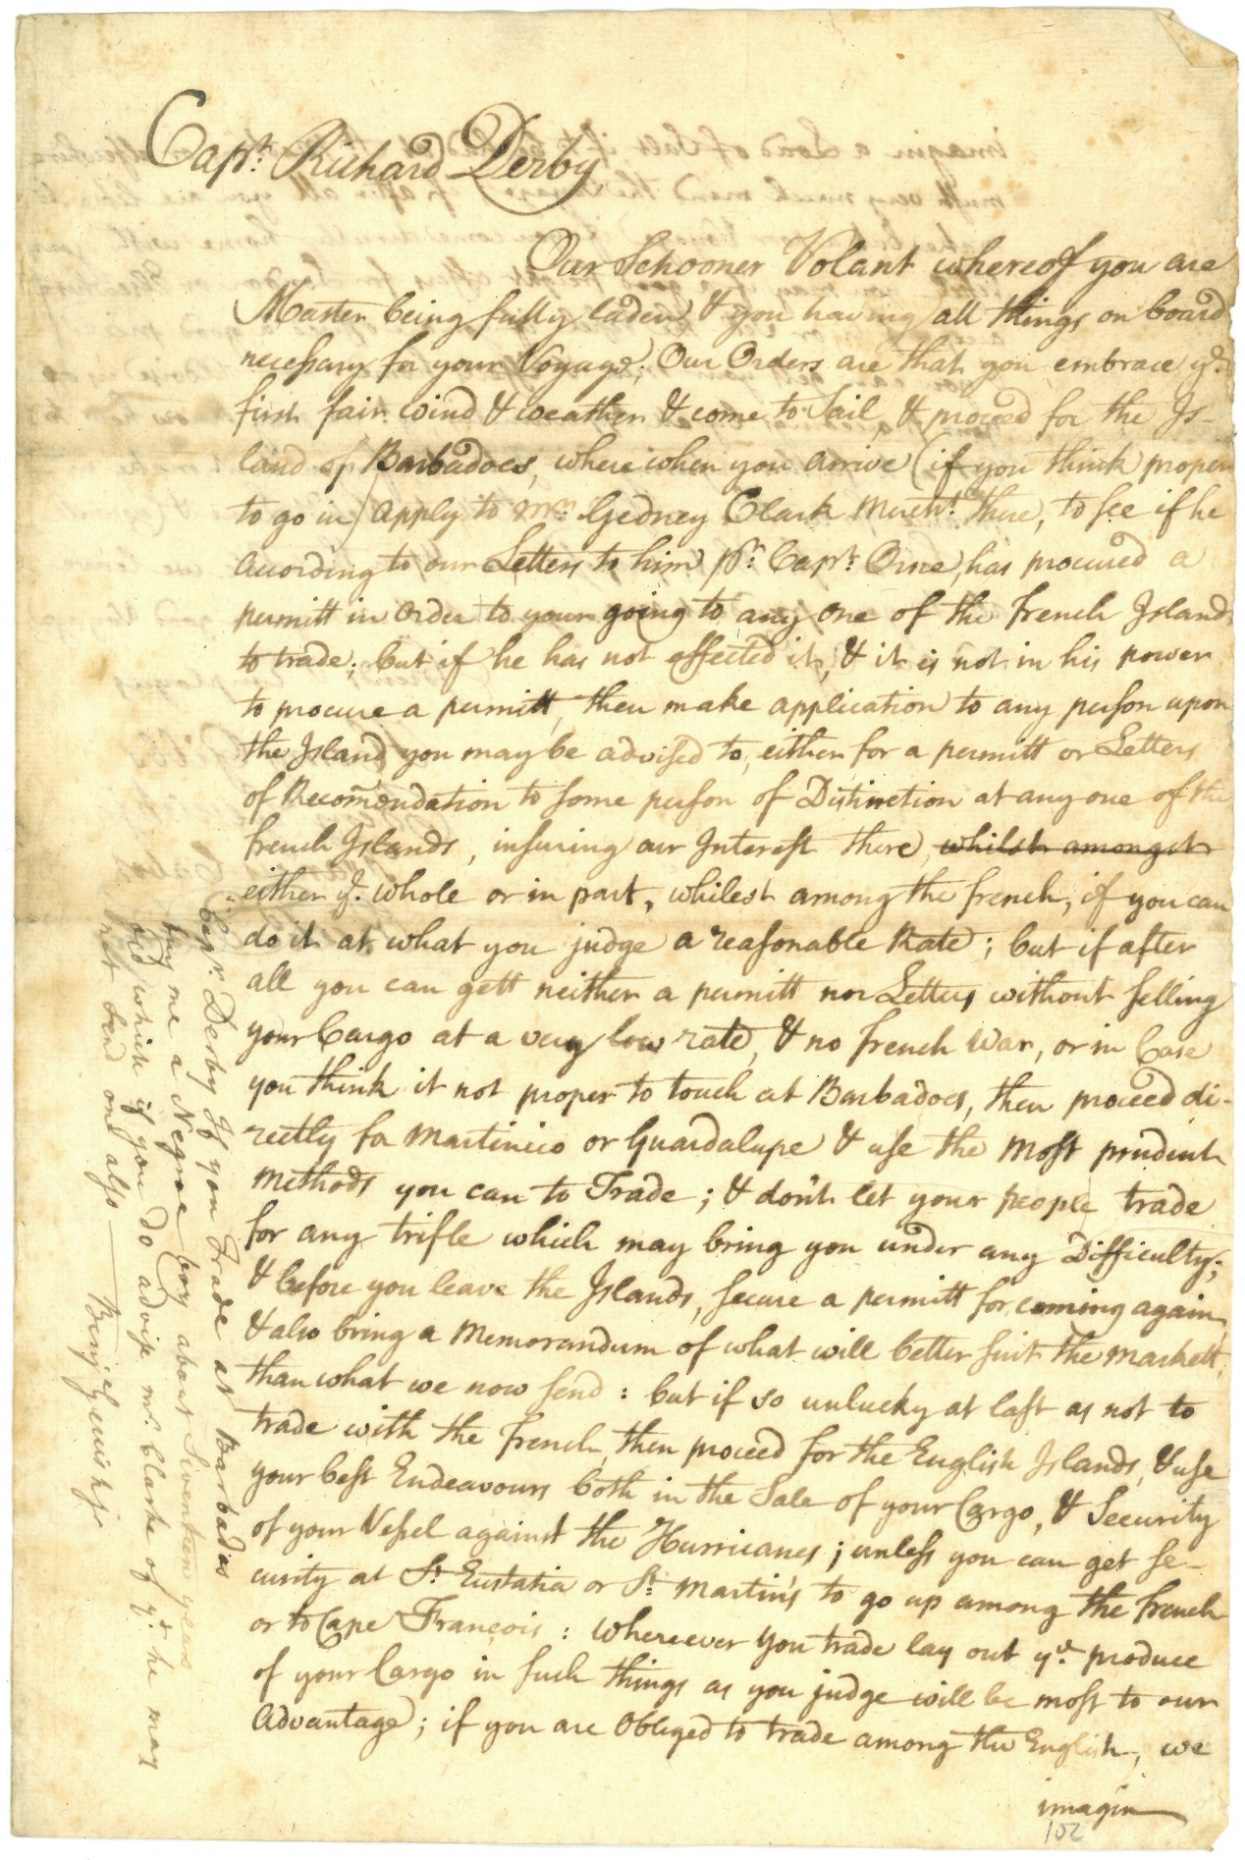 Capt. Richard Derby
Our Schooner Volant whereof you are
Master being fully laden & you having all things on board
necessary for your Voyage; Our Orders are that you embrace ye.
first fair wind & weather & come to Sail & proceed for the Is-
land of Barbadoes, where when you arrive (if you think proper
to go in) apply to Mr. Gedney Clark Mercht. there, to see if he
according to our Letters to him pr. Capt. Orne, has procured a
permitt in Order to your going to any one of the french Islands
to trade; but if he has not effected it, & it is not in his power
to procure a permitt, then make application to any person upon
the Island you may be advised to, either for a permitt or Letters
of Recomendation to some person of Distinction at any one of the
french Islands, insuring our Interest there, whilst amongst
either ye. whole or in part, whilest among the french, if you can
do it at what you judge a reasonable Rate; but if after
all you can gett neither a permitt nor Letters without selling
your Cargo at a very low rate, & no french War, or in Case
you think it not proper to touch at Barbadoes, then proceed di-
rectly for Martinico or Guardalupe & use the most prudent
Methods you can to Trade; & don't let your people trade
for any trifle which may bring you under any Difficulty;
& before you leave the Islands, secure a permitt for coming again
& also bring a Memorandum of what will better suit the markett
than what we now send: but if so unlucky at last as not to
trade with the french, then proceed for the English Islands, & use
your best Endeavours both in the Sale of your Cargo, & Security
of your Vessel against the Hurricanes; unless you can get se-
curity at St. Eustatia or St. Martin's to go up among the french
or to Cape François: whereever you trade lay out ye. produce
of your Cargo in such things as you judge will be most to our
Advantage; if you are Obliged to trade among the English, we
imagin
102
Capt. Derby If you Trade at Barbadoes
buy me a Negroe boy about Siventeen years
old, which if you do advise mr. Clarke of yt. he may
not send one also
Benj